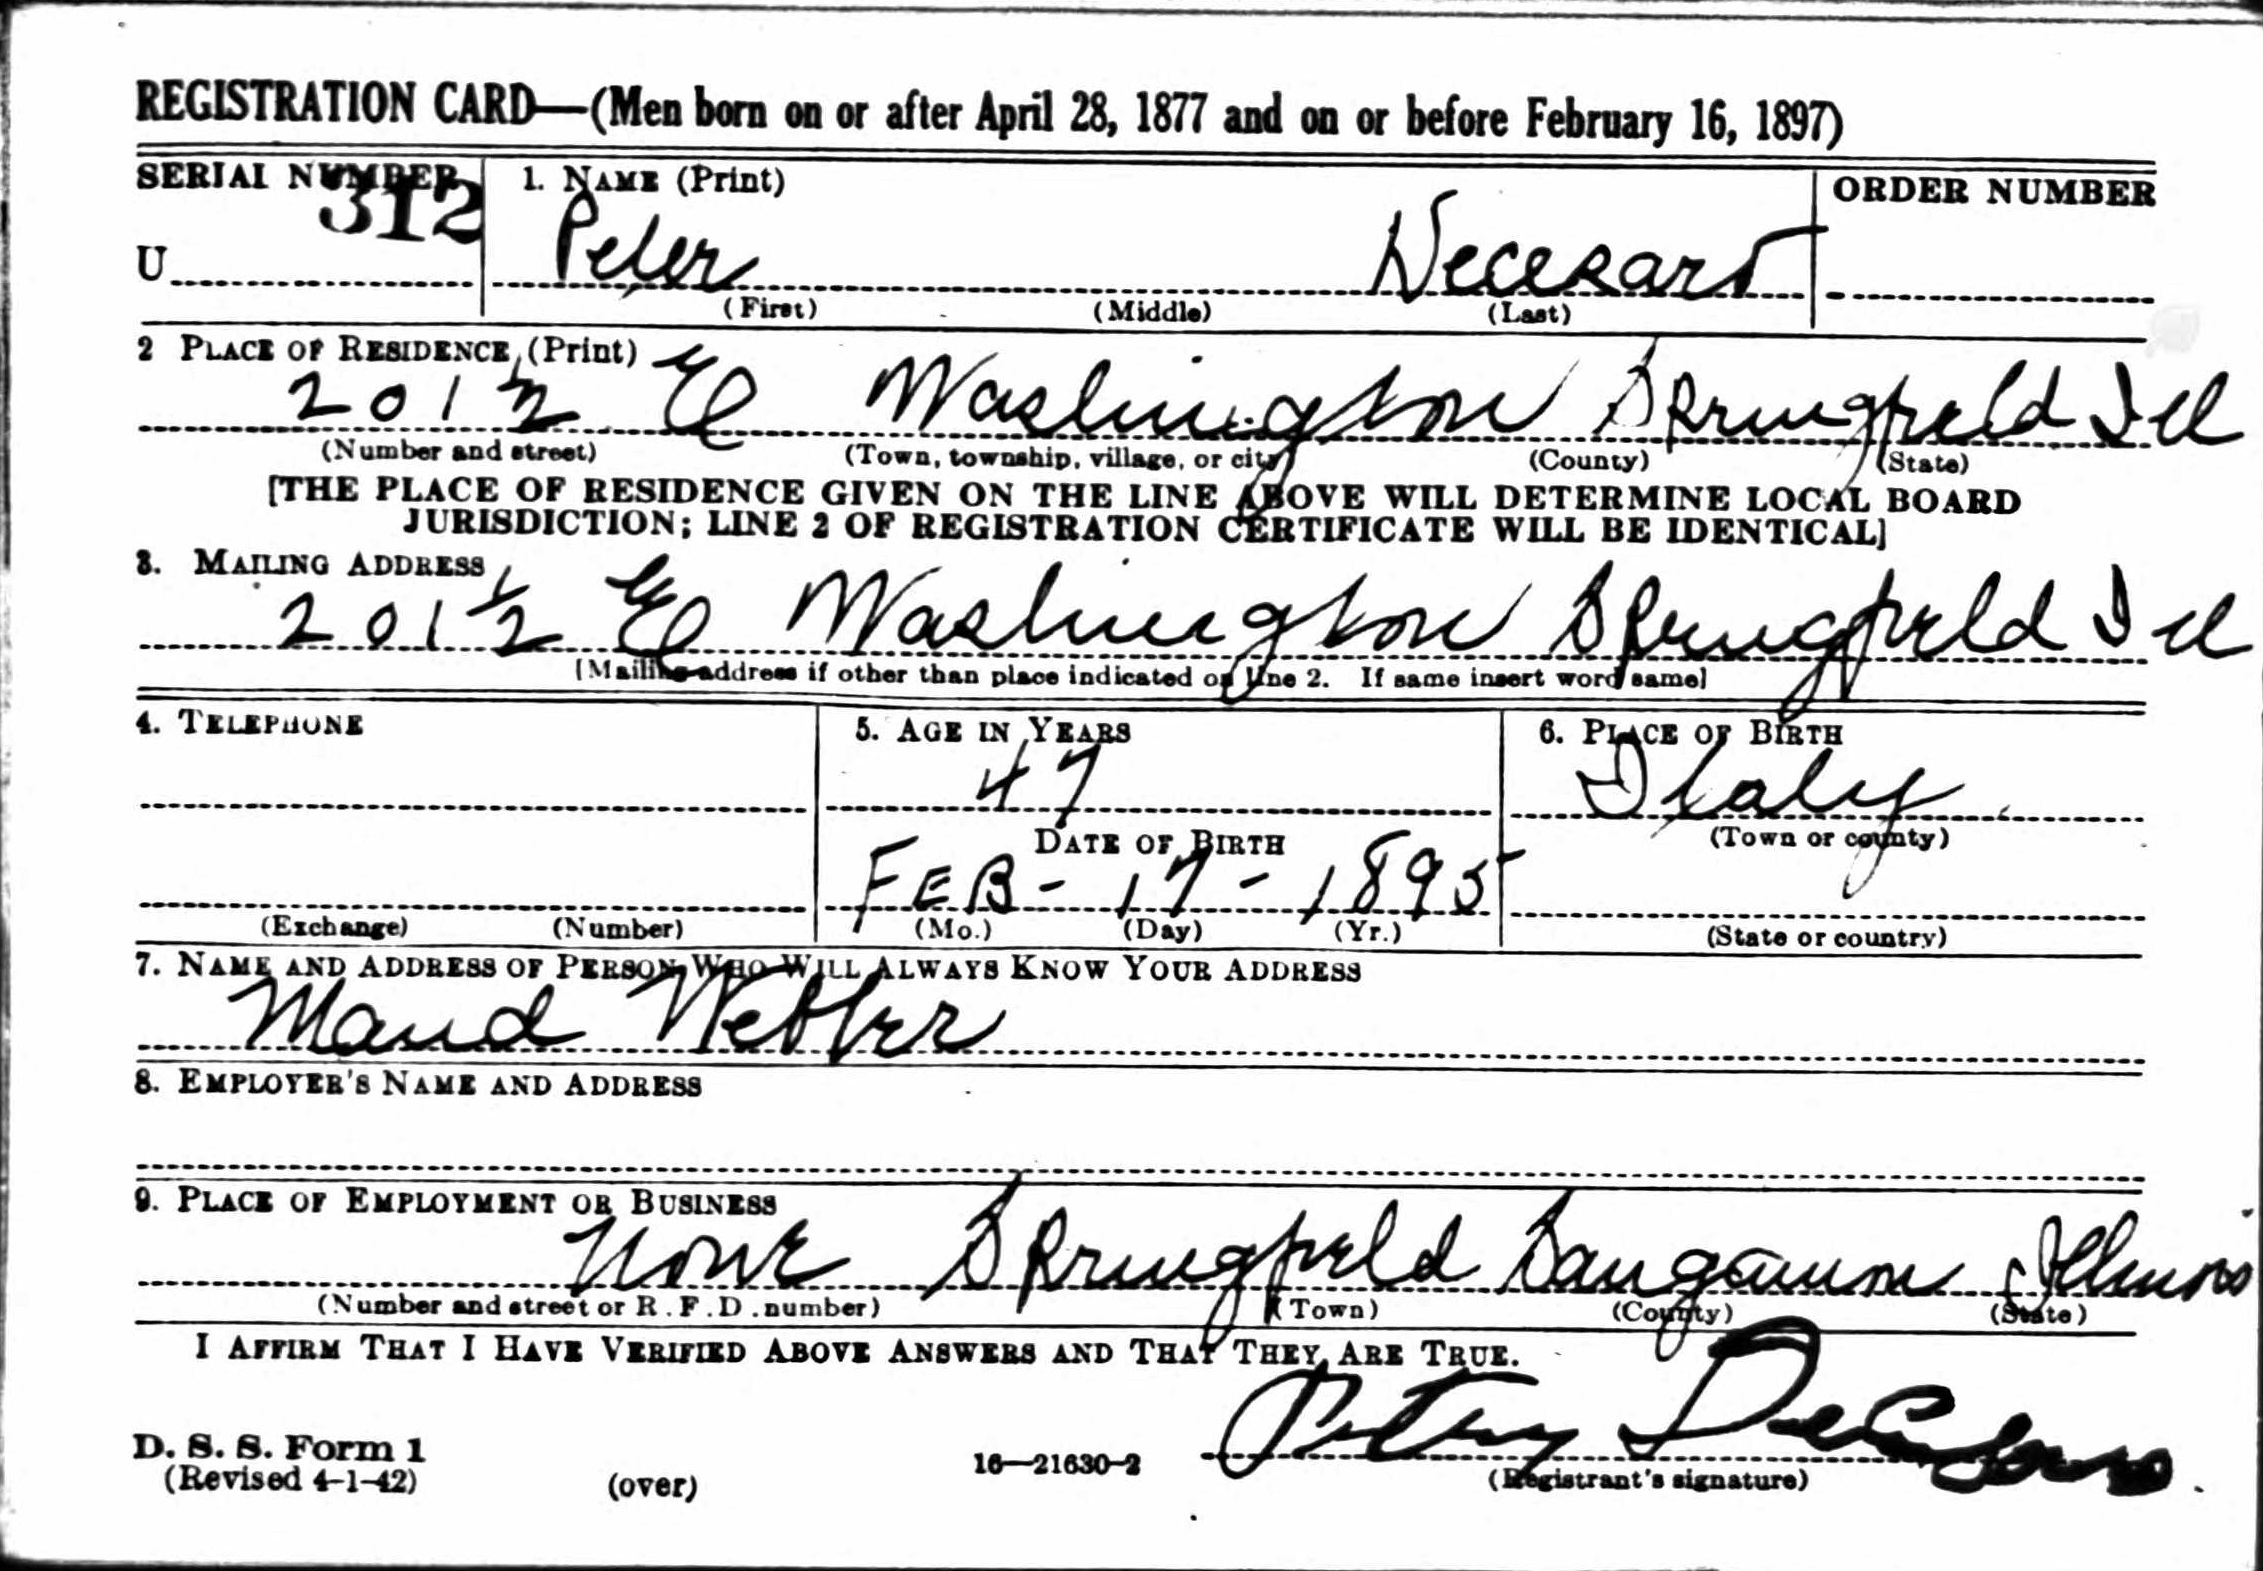 REGISTRATION CARD—(Men born on or after April 28, 1877 and on or before February 16, 1897)
SERIAL NUMBER 312 1. NAME (Print) ORDER NUMBER
U Peter Decesaro
(First) (Middle) (Last)
2 PLACE OF RESIDENCE (Print)
201 1/2 E Washington Springfield Ill
(Number and street) (Town, township, village, or city) (County) (State)
[THE PLACE OF RESIDENCE GIVEN ON THE LINE ABOVE WILL DETERMINE LOCAL BOARD
JURISDICTION; LINE 2 OF REGISTRATION CERTIFICATE WILL BE IDENTICAL]
3. MAILING ADDRESS
201 1/2 E Washington Springfield Ill
[Mailing address if other than place indicated on line 2. If same insert word same]
4. TELEPHONE 5. AGE IN YEARS 6. PLACE OF BIRTH
47 Italy
DATE OF BIRTH (Town or county)
FEB - 17 - 1895
(Exchange) (Number) (Mo.) (Day) (Yr.) (State or country)
7. NAME AND ADDRESS OF PERSON WHO WILL ALWAYS KNOW YOUR ADDRESS
Maud Webber
8. EMPLOYER'S NAME AND ADDRESS
9. PLACE OF EMPLOYMENT OR BUSINESS
None Springfield Sangamon Illinois
(Number and street or R.F.D. number) (Town) (County) (State)
I AFFIRM THAT I HAVE VERIFIED ABOVE ANSWERS AND THAT THEY ARE TRUE.
D. S. S. Form 1
(Revised 4-1-42) (over) 16—21630-2 (Registrant's signature)